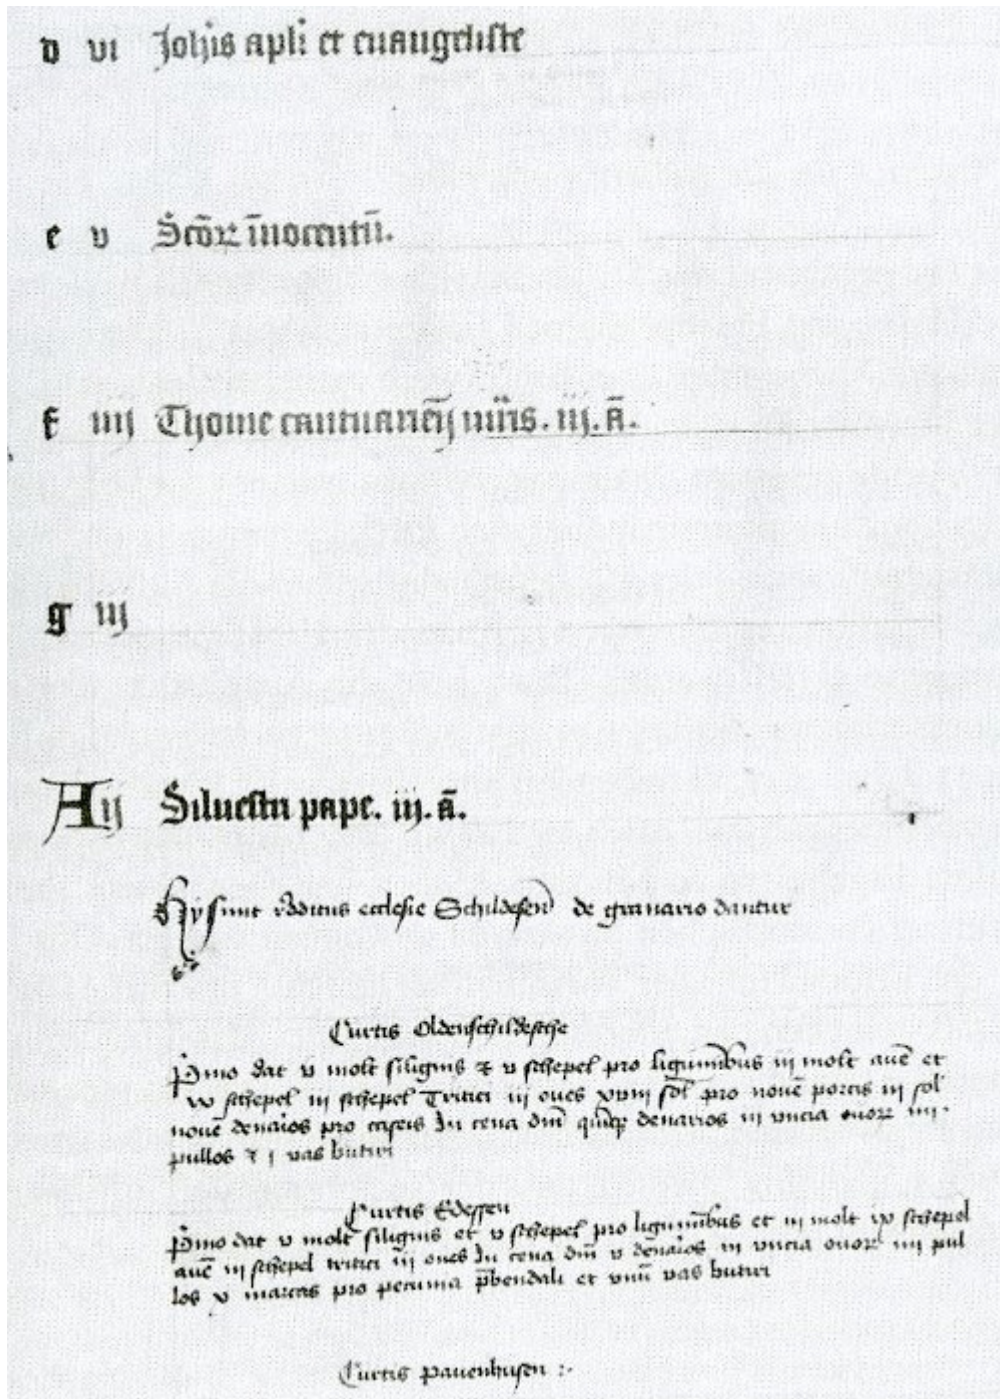 d vi Joh̄is apl̄i et euangeliste
e v Sc̄oꝝ īnocentū.
f iiij Thome cantuarieñ m̄ris. iij. ā.
g iij
A ij Siluestri pape. iij. ā.
Hy sunt rᵉdditus ecclesie Schildeseñ de granario dantur
Curtis Oldenschildesche
P̄mo dat v molt siliginis & v schepel pro liguminībus iij molt aueē et
schepel iij schepel Tritici iij oues xviij sol pro nouē porcis iij sol
nouē denaīos pro caseis In cena dm̄ quīqꝫ denarios iij vncia ouoꝝ iiij.
pullos & j vas butiri
Curtis Edessen
P̄mo dat v molt siliginis et v schepel pro ligumīnbus et iij molt ix schepel
auē iij schepel tritici iij oues In cena dm̄ v denaīos iij vncia ouoꝝ iiij pul
los v marcas pro pecunia p̄bendali et vnū vas butiri
Curtis pauenhusen :-